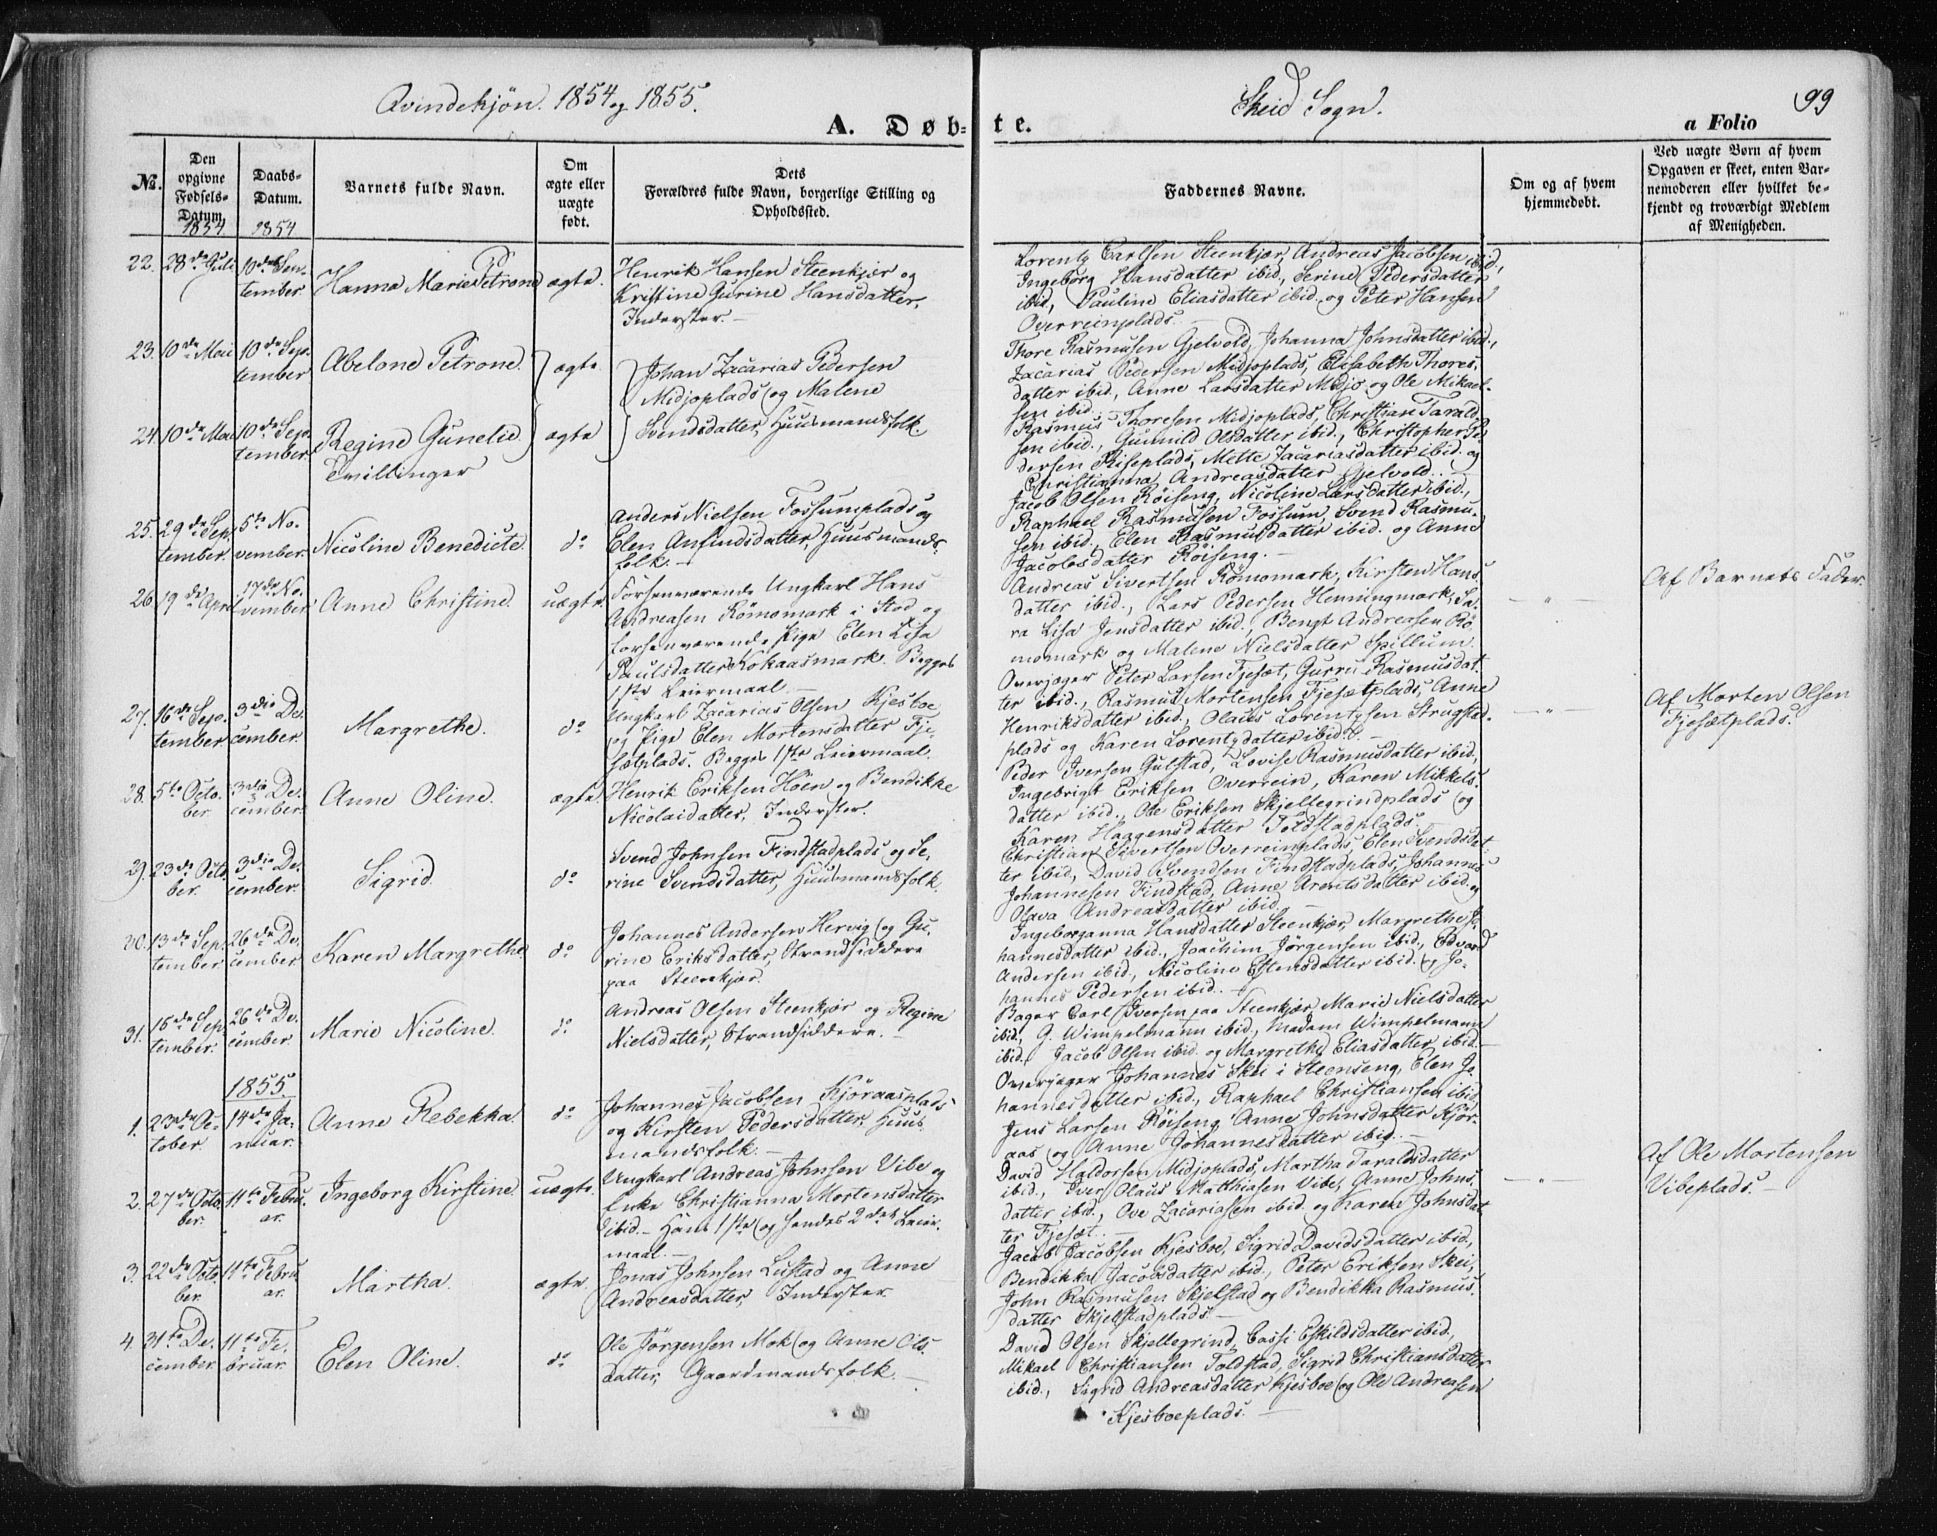 Qvindekjön. 1854 og 1855.
Skeid Sogn.
99
A. Døb-
te.
a Folio
No.
Den opgivne Fødsels-Datum.
Daabs-Datum.
Barnets fulde Navn.
Om ægte eller uægte født.
Dets Forældres fulde Navn, borgerlige Stilling og Opholdssted.
Faddernes Navne.
Om og af hvem hjemmedøbt.
Ved uægte Børn af hvem Opgaven er skeet, enten Barnemoderen eller hvilket bekjendt og troværdigt Medlem af Menigheden.
1854
1854
22. 28de Juli
10de Sep-
tember
Hanna Marie Petrone
ægte.
Henrik Hansen Steenkjær og
Kristine Gurine Hansdatter,
Inderster.-
Lorentz Carlsen Steenkjær, Andreas Jacobsen ibid,
Ingeborg Hansdatter ibid, Serine Pedersdatter
ibid, Pauline Eliasdatter ibid og Peter Hansen
Overreinplads.-
23. 10de Mai
10de Sep.
tember
Abelone Petrone.
ægte
Johan Zacarias Pedersen
Midjoplads og Malene
Thore Rasmusen Gjelvold, Johanna Johnsdatter ibid.,
Zacarias Pedersen Midjoplads, Elisabeth Thores.
datter ibid, Anne Larsdatter Midjo og Ole Mikael-
sen ibid.
24. 10de Mai
10de Sep.
tember.
Regine Gunelie
Tvillinger
ægte
Svendsdatter, Huusmandsfolk.
Rasmus Thoresen Midjoplads, Christian Tarald-
sen ibid., Gunnild Olsdatter ibid., Christopher Pe-
dersen Riseplads, Mette Zacariasdatter ibid. og
Christianna Andreasdatter Gjelvold.-
25. 29de Sep.
tember.
5te No-
vember.
Nicoline Benedicte.
do
Anders Nielsen Fossumplads og
Elen Anfindsdatter, Huusmands.
folk.-
Jacob Olsen Röiseng, Nicoline Larsdatter ibid.,
Raphael Rasmusen Fossum, Svend Rasmu.
sen ibid., Elen Rasmusdatter ibid. og Anne
Jacobsdatter Röiseng.-
26. 19de April
17de No.
vember.
Anne Christine.
uægte.
Forhenværende Ungkarl Hans
Andreasen Römomark i Stod og
forhenværende Pige Elen Lisa
Paulsdatter Kokaasmark. Begges
1ste Leiermaal.-
Andreas Sivertsen Römomark, Kirsten Hans.
datter ibid., Lars Pedersen Henningmark, Sa-
ra Lisa Jensdatter ibid., Bengt Andreasen Rö-
momark og Malene Nielsdatter Spillum.
-"-
Af Barnets Fader.
27. 16de Sep.
tember
3die De-
cember.
Margrethe.
do
Ungkarl Zacarias Olsen Kjesboe
og Pige Elen Mortensdatter Fje-
sætplads. Begges 1ste Leiermaal.
Overjæger Peter Larsen Fjesæt, Gurru Rasmusdat-
ter ibid., Rasmus Mortensen Fjesætplads, Anne
Henriksdatter ibid., Olaus Lorentzen Strugstad-
plads og Karen Lorentzdatter ibid.-
-"-
Af Morten Olsen
Fjesætplads.
28. 5te Octo.
ber.
3die De-
cember.
Anne Oline.
ægte.
Henrik Eriksen Höen og Bendikke
Nicolaidatter, Inderster.
Peder Iversen Gulstad, Lovise Rasmusdatter ibid,
Ingebrigt Eriksen Overrein, Karen Mikkels-
datter ibid., Ole Eriksen Skjellegrindplads og
Karen Haagensdatter Toldstadplads.
29. 23de Octo
ber.
3die De-
cember.
Sigrid.
do
Svend Johnsen Findstadplads og Se.
rine Svendsdatter, Huusmandsfolk
Christian Sivertsen Overreinplads, Elen Svendsdat-
ter ibid, David Svendsen Findstadplads, Johannes
Johannesen Findstad, Anne Arentsdatter ibid. og
Olava Andreasdatter ibid.-
30. 13de Sep.
tember
26de De-
cember
Karen Margrethe
do
Johannes Andersen Hervig og Gu-
rine Eriksdatter, Strandsiddere
paa Steenkjær.
Ingeborganna Hansdatter Steenkjær, Margrethe Jo-
hannesdatter ibid., Joachim Jörgensen ibid., Edvard
Andersen ibid., Nicoline Estensdatter ibid. og Jo-
hannes Pedersen ibid..-
31. 15de Sep
tember.
26de De-
cember
Marie Nicoline.
do
Andreas Olsen Steenkjær og Regine
Nielsdatter, Strandsiddere.-
Bager Carl Iversen paa Steenkjær, Marie Nielsdatter
ibid, G. Wimpelmann ibid., Madam Wimpelmann
ibid., Jacob Olsen ibid. og Margrethe Eliasdatter ibid.
1855.
1. 23de Oc-
tober.
14de Ja-
nuar.
Anne Rebekka.
do
Johannes Jacobsen Kjöraasplads
og Kirsten Pedersdatter, Huus-
mandsfolk.-
Overjæger Johannes Skei i Steenseng, Elen Jo-
hannesdatter ibid., Raphael Christiansen ibid.
Jens Larsen Röiseng, Anne Johnsdatter Kjör-
aas og Anne Johannesdatter ibid..-
2. 27de Octo.
ber.
11te Febru.
ar.
Ingeborg Kirstine.
uægte.
Ungkarl Andreas Johnsen Vibe og
Enke Christianna Mortensdatter
ibid.- Hans 1ste og hendes 2det Leier-
maal.-
David Haldorsen Midjoplads, Martha Taraldsdatter
ibid., Iver Olaus Matthiasen Vibe, Anne Johns.
datter ibid., Ove Zacariasen ibid. og Karen Johnsdat
ter Fjesæt..-
-"-
Af Ole Mortensen
Vibeplads.-
3. 22de Octo.
ber.
11te Febru
ar.
Martha.
ægte.
Jonas Johnsen Lustad og Anne
Andreasdatter, Inderster
Jacob Jacobsen Kjesboe, Sigrid Davidsdatter ibid.,
Bendikka Jacobsdatter ibid., Peter Eriksen Skei,
John Rasmusen Skjelstad og Bendikka Rasmus.
datter Skjelstadplads.-
4. 31te De-
cember.
11te Fe-
bruar.
Elen Oline.
do
Ole Jörgensen Mok og Anne Ols
datter, Gaardmandsfolk.-
David Olsen Skjellegrind, Cassi Eskildsdatter ibid.,
Mikael Christiansen Toldstad, Sigrid Christiansdatter
ibid., Sigrid Andreasdatter Kjesboe og Ole Andreasen
Kjesboeplads.-